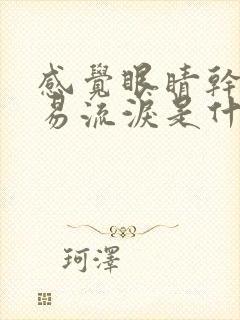 感覺眼睛幹
易流淚是什
珂澤